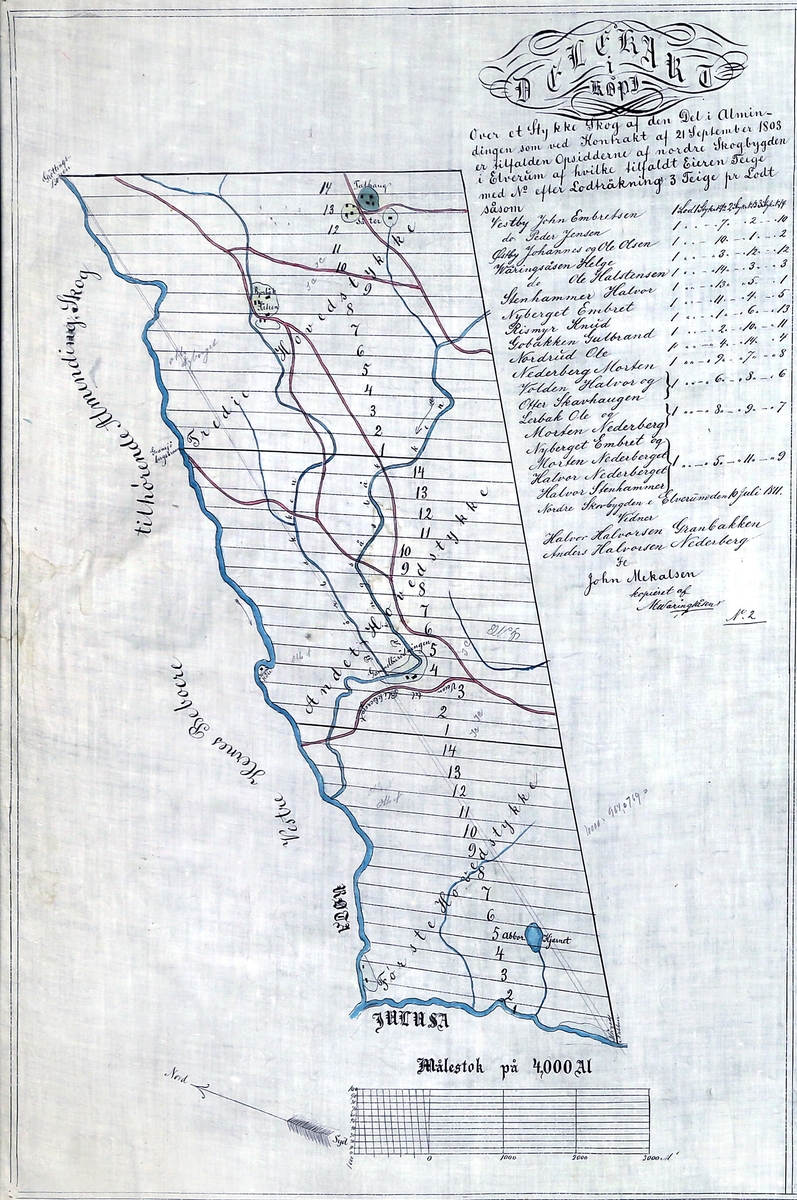 DELEKART
i
KOPI
Over et Stykke Skog af den Del i Almin-
dingen som ved Kontrakt af 21 September 1803
er tilfalden Opsidderne af nordre Skogbygden
i Elverum af hvilke tilfaldt Eieren Teige
med No efter Lodträkning 3 Teige pr Lodt
såsom
Vestby John Embretsen 1 . . 7 . . 2 . . 10
do Peder Jensen 1 . . 10 . . 1 . . 2
Østby Johannes og Ole Olsen 1 . . 3 . . 12 . . 12
Wäringsåsen Helge 1 . . 14 . . 3 . . 3
do Ole Halstensen 1 . . 13 . . 5 . . 1
Stenhammer Halvor 1 . . 11 . . 4 . . 5
Nyberget Embret 1 . . 1 . . 6 . . 13
Rismyr Knud 1 . . 2 . . 10 . . 11
Gobakken Gulbrand 1 . . 4 . . 14 . . 4
Nordrud Ole 1 . . 9 . . 7 . . 8
Nederberg Morten
Volden Halvor og 1 . . 6 . . 8 . . 6
Otter Skavhaugen
Lerbak Ole og 1 . . 8 . . 9 . . 7
Morten Nederberg
Nyberget Embret og
Morten Nederberget
Halvor Nederberget 1 . . 5 . . 11 . . 9
Halvor Stenhammer
Nordre Skovbygden i Elverum den 10 Juli 1811.
Vidner
Halvor Halvorsen Granbakken
Anders Halvorsen Nederberg
John Mikalsen
kopieret af
No 2
tilhørende Almindings Skog
Vestre Hernes Beboere
14
Talhaug
13
Säter
12
11
10
9
8
7
6
5
4
3
2
1
Tredje Hovedstykke
14
13
12
11
10
9
8
7
6
5
4
3
2
1
Andet Hovedstykke
14
13
12
11
10
9
8
7
6
5 Abbor Kjernet
4
3
2
1
Første Hovedstykke
JULUSA
Målestok på 4,000 Al
Nord
Syd
0 1000 2000 3000 Al